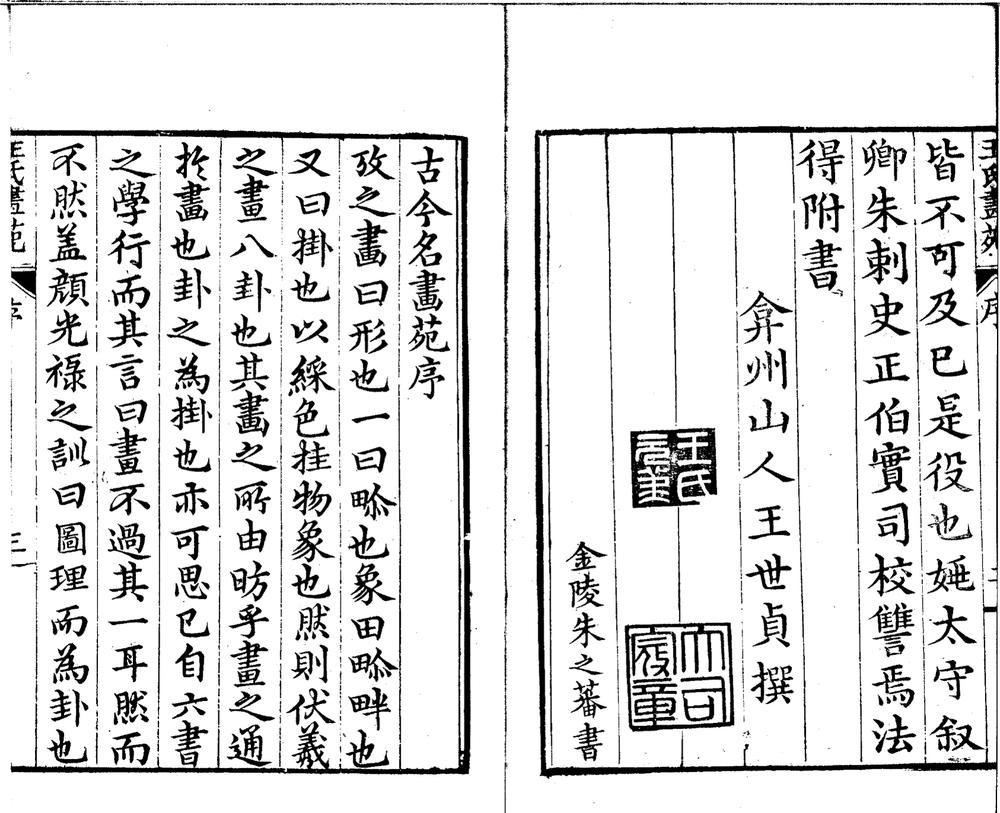 王氏畫苑
序
二
皆不可及已是役也娷太守叙
卿朱刺史正伯實司校讐焉法
得附書
弇州山人王世貞撰
王氏元美
大司寇章
金陵朱之蕃書
古今名畫苑序
攷之畫曰形也一曰畛也象田畛畔也
又曰掛也以綵色挂物象也然則伏羲
之畫八卦也其畫之所由昉乎畫之通
於畫也卦之為掛也亦可思已自六書
之學行而其言曰畫不過其一耳然而
不然盖顏光祿之訓曰圖理而為卦也
王氏畫苑
序
三